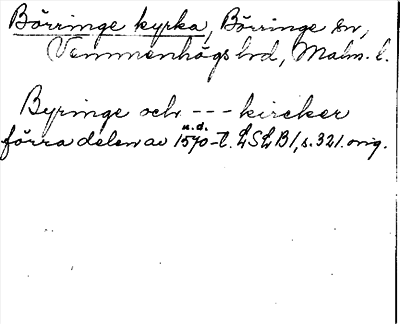 Börringe kyrka, Börringe sn,
Vemmenhögs hrd, Malm. l.
Byringe och --- kircker
u.d.
förra delen av 1570-t. LSLB1, s. 321. orig.